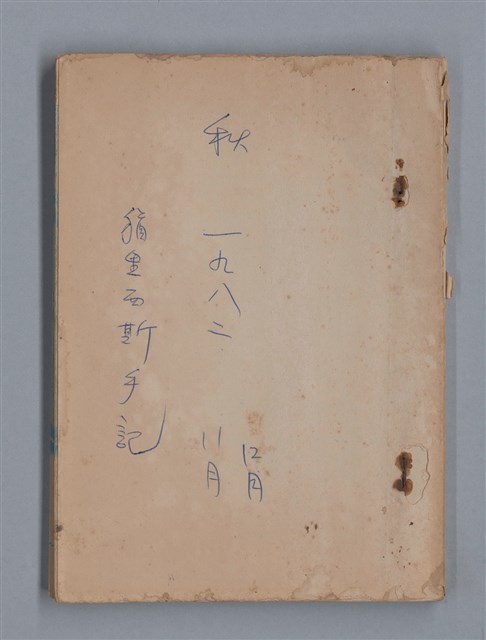 秋 一九八二 11月
12月
猶里西斯手記